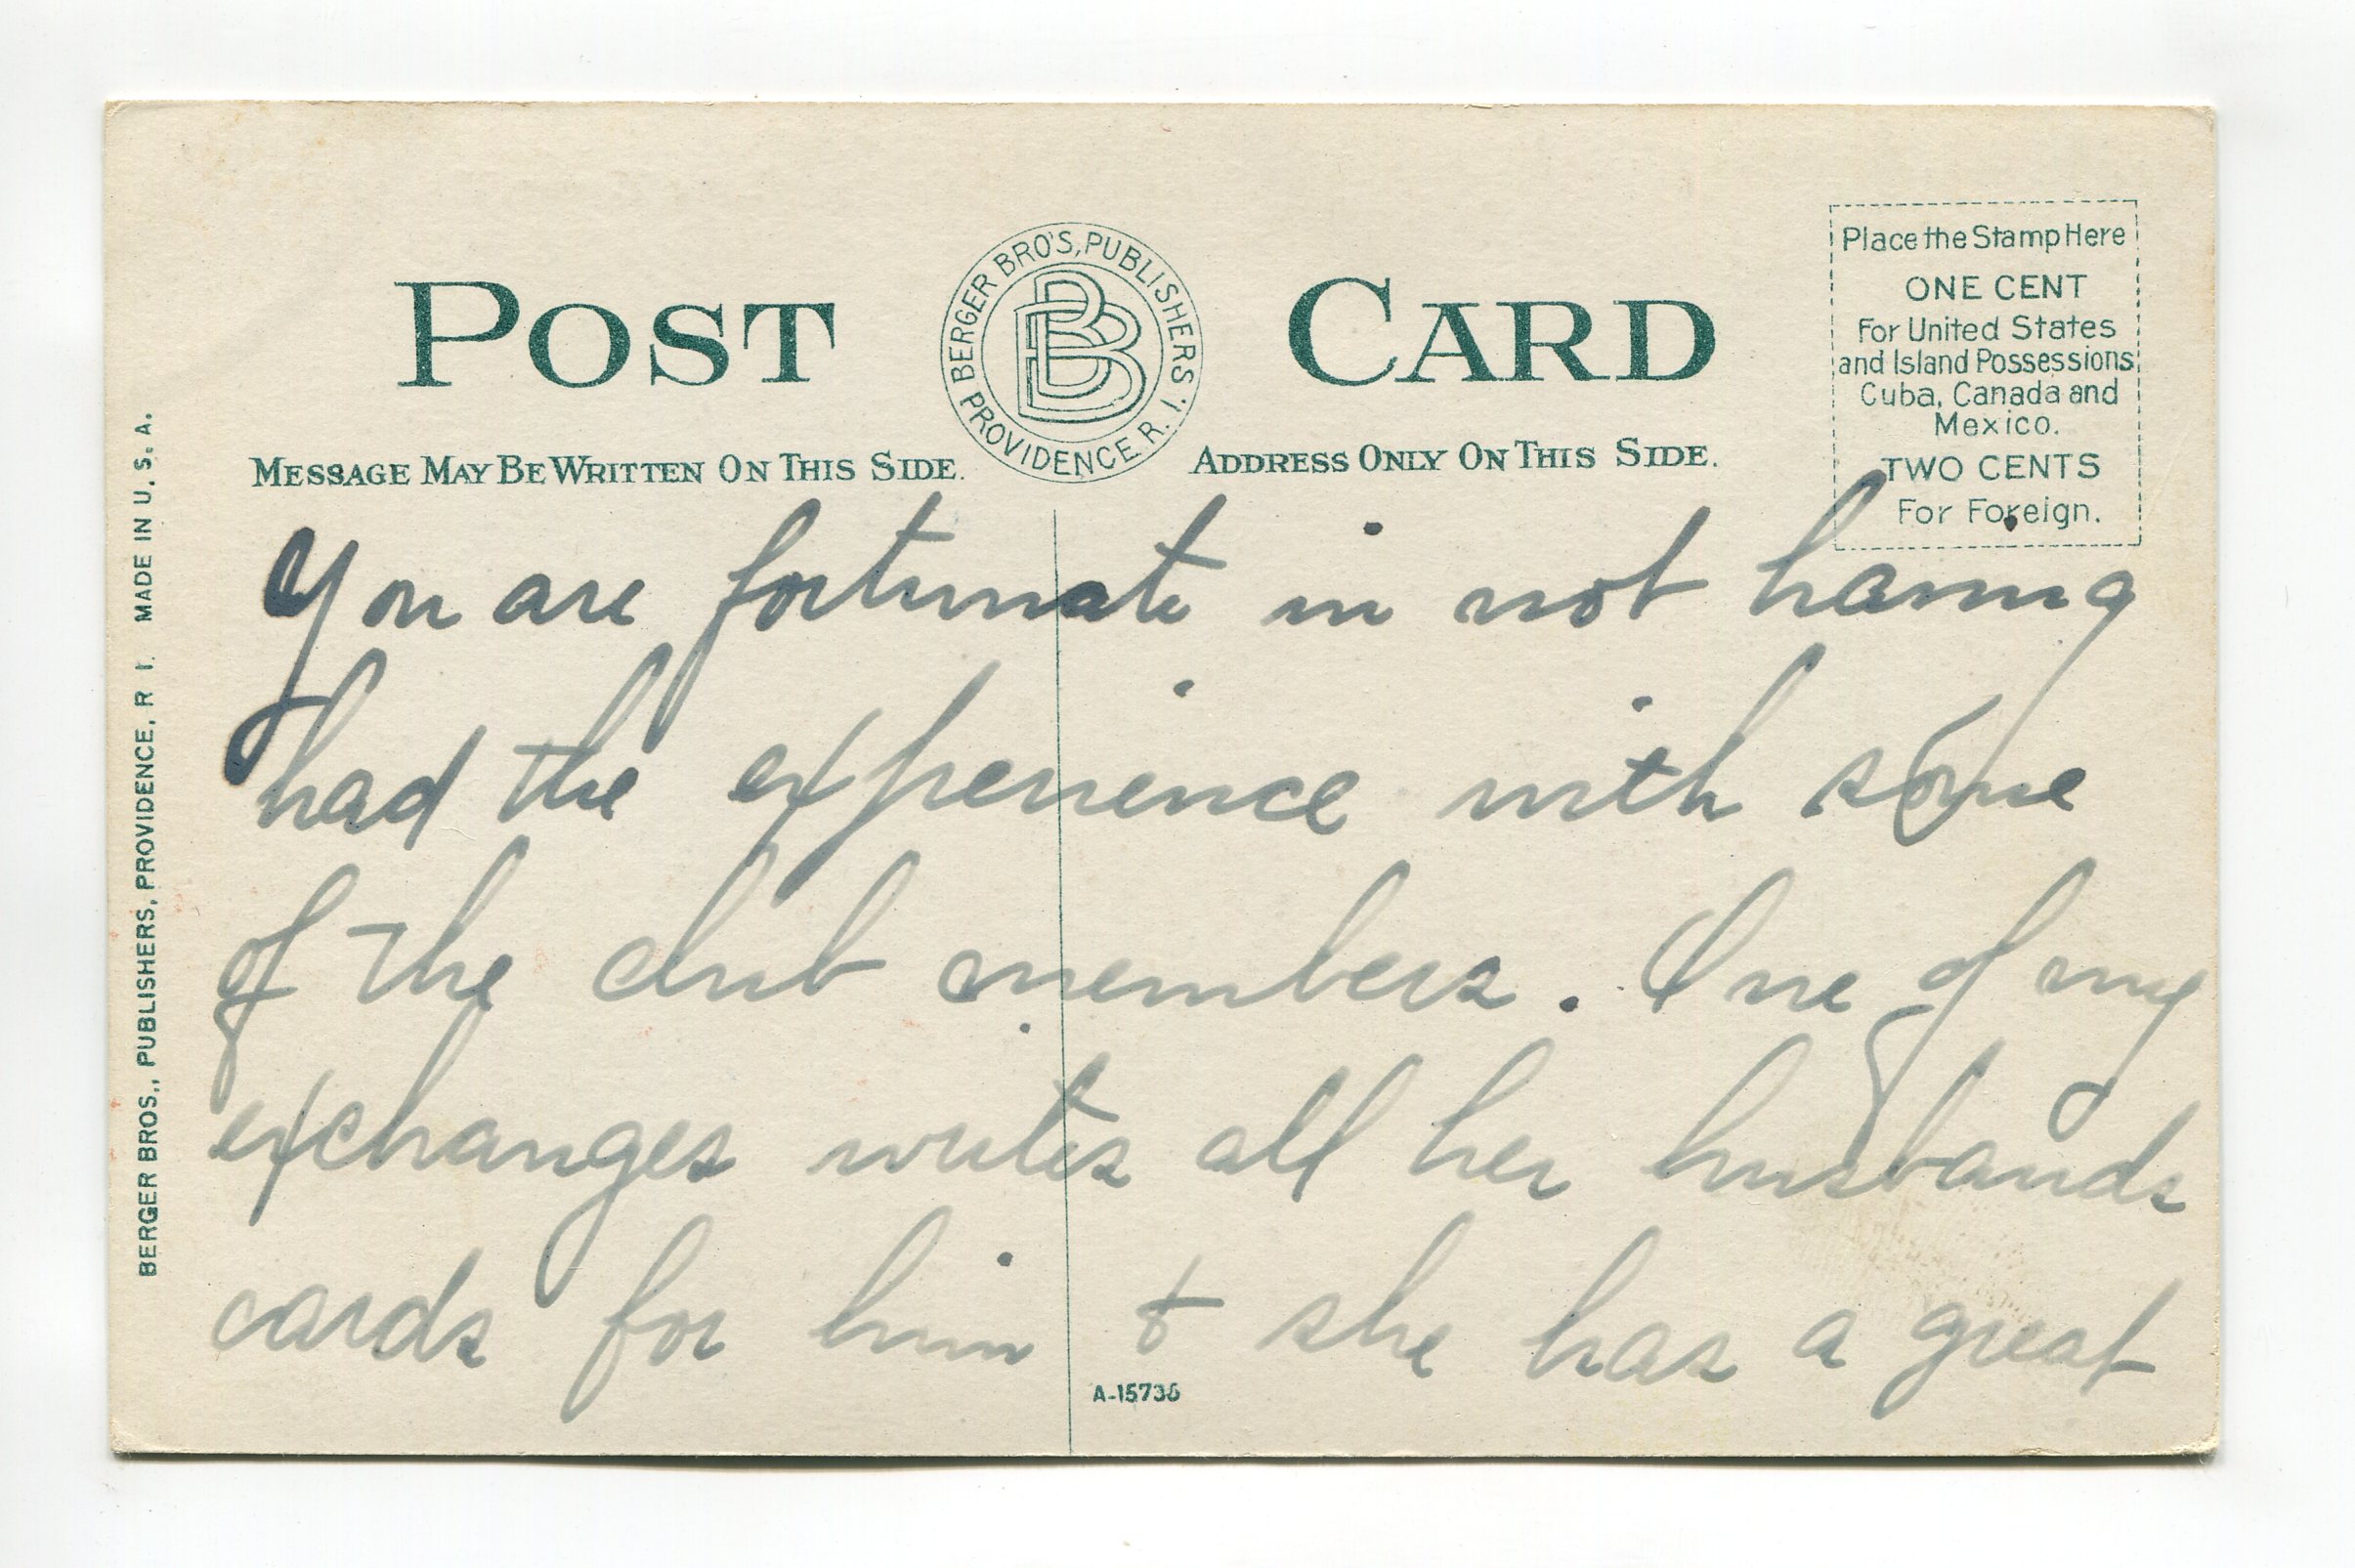 POST CARD
BERGER BRO'S, PUBLISHERS PROVIDENCE R. I.
BB
MESSAGE MAY BE WRITTEN ON THIS SIDE.
ADDRESS ONLY ON THIS SIDE.
Place the Stamp Here
ONE CENT
For United States
and Island Possessions
Cuba, Canada and
Mexico.
TWO CENTS
For Foreign.
BERGER BROS., PUBLISHERS, PROVIDENCE, R I. MADE IN U. S. A.
You are fortunate in not having
had the experience with some
of the club members. One of my
exchanges writes all her husbands
cards for him & she has a great
A-15736